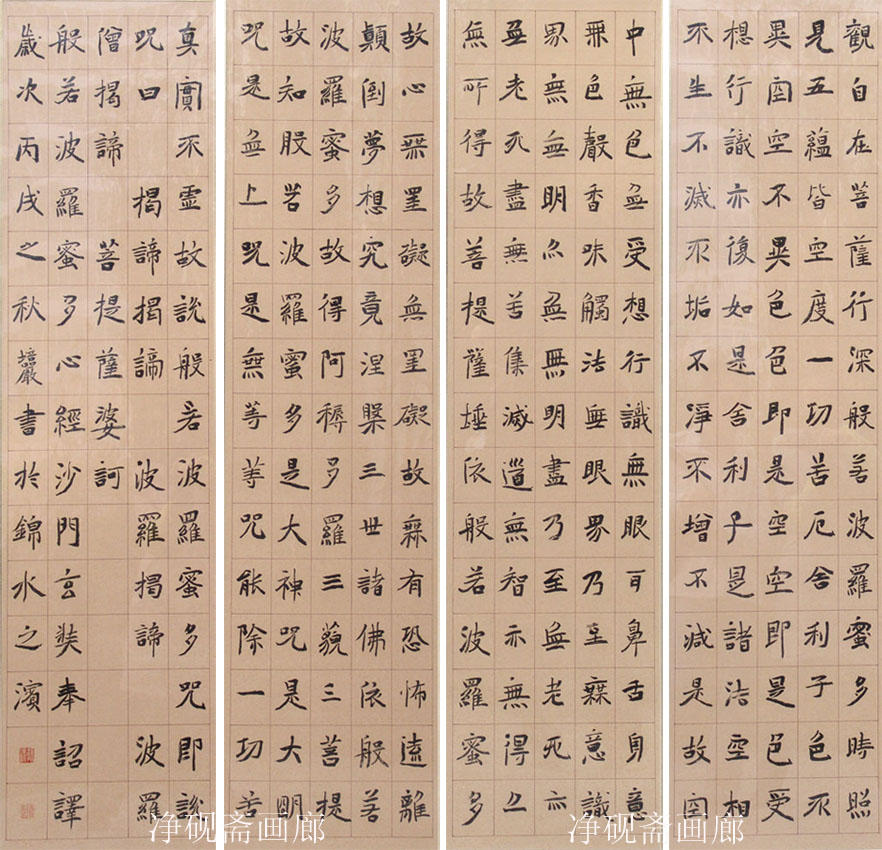 觀自在菩薩行深般若波羅蜜多時照
見五蘊皆空度一切苦厄舍利子色不
異空空不異色色即是空空即是色受
想行識亦復如是舍利子是諸法空相
不生不滅不垢不淨不增不減是故空
中無色無受想行識無眼耳鼻舌身意
無色聲香味觸法無眼界乃至無意識
界無無明亦無無明盡乃至無老死亦
無老死盡無苦集滅道無智亦無得以
無所得故菩提薩埵依般若波羅蜜多
故心無罣礙無罣礙故無有恐怖遠離
顛倒夢想究竟涅槃三世諸佛依般若
波羅蜜多故得阿耨多羅三藐三菩提
故知般若波羅蜜多是大神咒是大明
咒是無上咒是無等等咒能除一切苦
真實不虛故說般若波羅蜜多咒即說
咒曰 揭諦揭諦 波羅揭諦 波羅
僧揭諦 菩提薩婆訶
般若波羅蜜多心經沙門玄奘奉詔譯
歲次丙戌之秋 書於錦水之濱
净砚斋画廊
净砚斋画廊